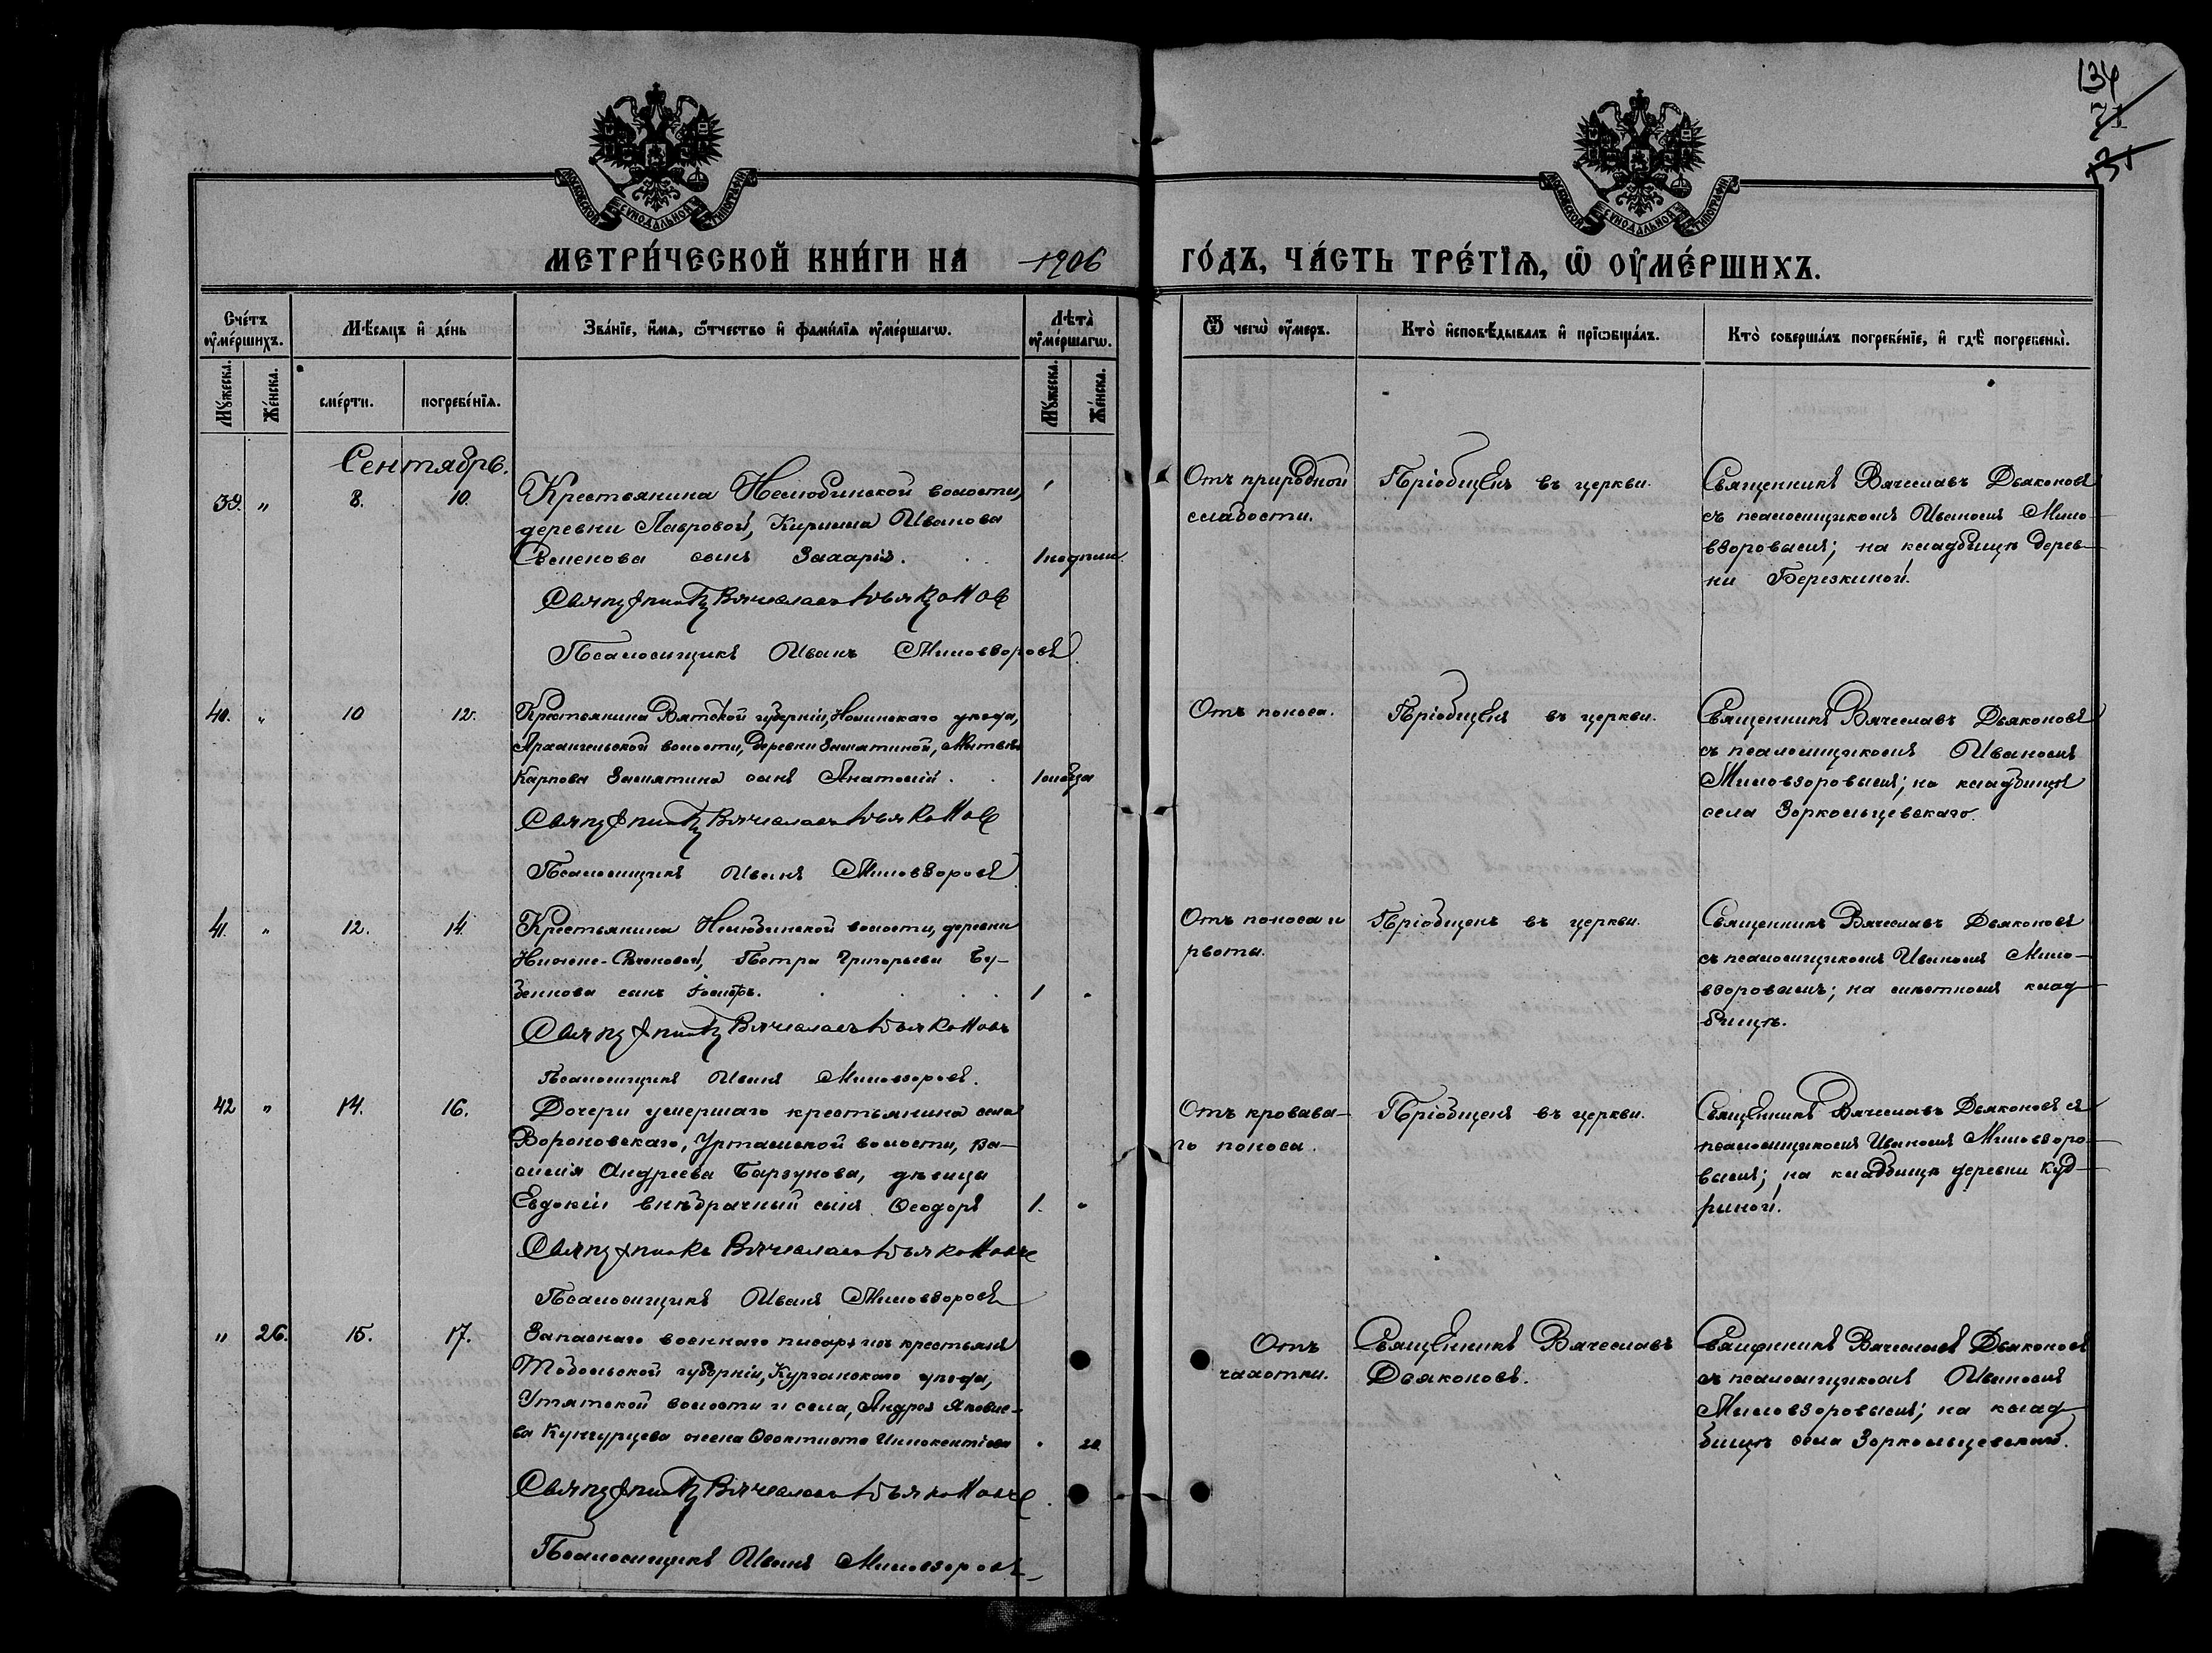 134
71
131
МОСКОВСКОЙ СѴНОДАЛЬНОЙ ТИПОГРАФІИ
МОСКОВСКОЙ СѴНОДАЛЬНОЙ ТИПОГРАФІИ
МЕТРИ́ЧЕСКОЙ КНИ́ГИ НА 1906 ГО́ДЪ, ЧА́СТЬ ТРЕ́ТІѦ, Ѡ ОУМЕ́РШИХЪ.
Сче́тъ оуме́ршихъ.
Мѣсяцъ и де́нь
Зва́нїе, и́мѧ, ѿтчество и фами́лїѧ оуме́ршагѡ.
Лѣта̀ оуме́ршагѡ.
Ѿ чегѡ̀ оу́меръ.
Кто̀ и҆сповѣ́дывалъ и прїѡбща́лъ.
Кто̀ соверша́лъ погребе́нїе, и гдѣ̀ погребены̀.
Му́жеска.
Же́нска.
сме́рти.
погребе́нїѧ.
Му́жеска.
Же́нска.
Сентябрь.
39. " 8. 10.
Крестьянина Нелюбинской волости,
деревни Лавровой, Кирилла Иванова
Семенова сынъ Захарія.
Священникъ Вячеславъ Дьяконовъ
Псаломщикъ Иванъ Миловзоровъ
Отъ природной
слабости.
Пріобщенъ въ церкви.
Священникъ Вячеславъ Дьяконовъ
съ псаломщикомъ Иваномъ Мило-
взоровымъ; на кладбищѣ дерев-
ни Березкиной.
40. " 10 12.
Крестьянина Вятской губерніи, Нолинскаго уѣзда,
Архангельской волости, деревни Замятиной,
Карпова Замятина сынъ Анатолій.
Священникъ Вячеславъ Дьяконовъ
Псаломщикъ Иванъ Миловзоровъ
Отъ поноса.
Пріобщенъ въ церкви.
Священникъ Вячеславъ Дьяконовъ
съ псаломщикомъ Иваномъ
Миловзоровымъ; на кладбищѣ
села Зоркольцевскаго.
41. " 12. 14.
Крестьянина Нелюбинской волости, деревни
Петра Григорьева Бу-
сынъ 1
Священникъ Вячеславъ Дьяконовъ
Псаломщикъ Иванъ Миловзоровъ.
Отъ поноса и
рвоты.
Пріобщенъ въ церкви.
Священникъ Вячеславъ Дьяконовъ
съ псаломщикомъ Иваномъ Мило-
взоровымъ; на мѣстномъ клад-
бищѣ.
42 " 14. 16.
Дочери умершаго крестьянина села
Вороновскаго, Уртамской волости, Ва-
силія Андреева Барзунова, дѣвицы
Евдокіи внѣбрачный сынъ Ѳеодоръ 1.
Священникъ Вячеславъ Дьяконовъ
Псаломщикъ Иванъ Миловзоровъ
Отъ кровава-
го поноса.
Пріобщенъ въ церкви.
Священникъ Вячеславъ Дьяконовъ съ
псаломщикомъ Иваномъ Миловзоро-
вымъ; на кладбищѣ деревни Куд-
риной.
" 26. 15. 17.
Запаснаго военнаго писаря изъ крестьянъ
Тобольской губерніи, Курганскаго уѣзда,
Утятской волости и села, Андрея Яковле-
ва Кунгурцева жена Ѳеоктиста Иннокентіева
Священникъ Вячеславъ Дьяконовъ
Псаломщикъ Иванъ Миловзоровъ
Отъ
чахотки.
Священникъ Вячеславъ
Дьяконовъ.
Священникъ Вячеславъ Дьяконовъ
съ псаломщикомъ Иваномъ
Миловзоровымъ; на клад-
бищѣ села Зоркольцевскаго.